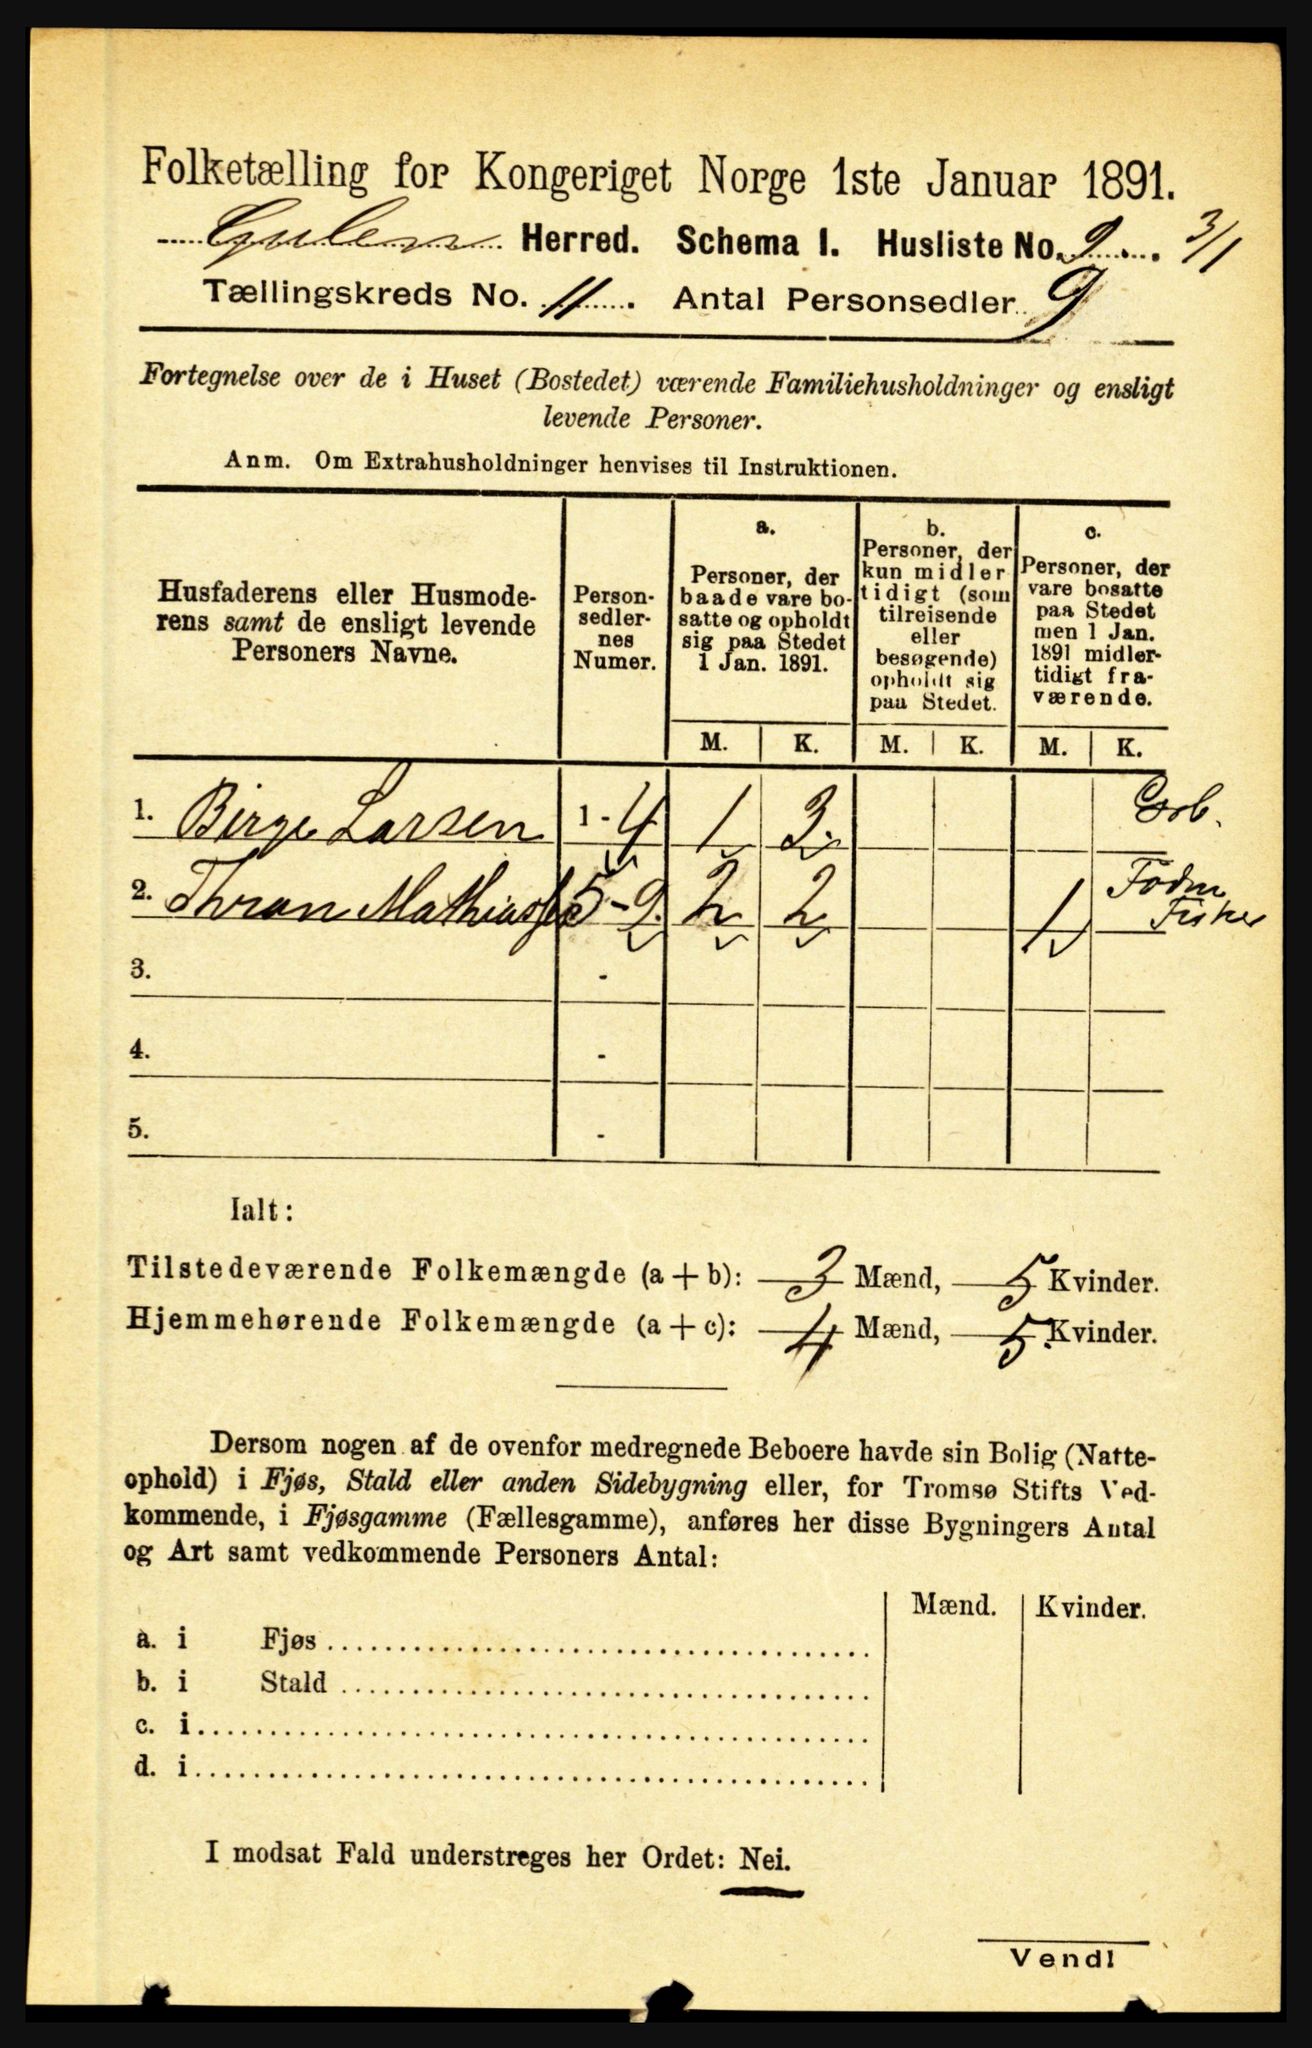 Folketælling for Kongeriget Norge 1ste Januar 1891.
Gulen Herred. Schema I. Husliste No. 2 3/1
Tællingskreds No. 11. Antal Personsedler 9
Fortegnelse over de i Huset (Bostedet) værende Familiehusholdninger og ensligt
levende Personer.
Anm. Om Extrahusholdninger henvises til Instruktionen.
Husfaderens eller Husmode-
rens samt de ensligt levende
Personers Navne.
Person-
sedler-
nes
Numer.
a.
Personer, der
baade vare bo-
satte og opholdt
sig paa Stedet
1 Jan. 1891.
b.
Personer, der
kun midler
tidigt (som
tilreisende
eller
besøgende)
opholdt sig
paa Stedet.
c.
Personer, der
vare bosatte
paa Stedet
men 1 Jan.
1891 midler-
tidigt fra-
værende.
M. K. M. K. M. K.
1. Birge Larsen 1 - 4 1 3
2. Thron Mathias 5 - 9. 2 2 1 Fisker
3. -
4. -
5. -
Ialt:
Tilstedeværende Folkemængde (a + b): 3 Mænd, 5 Kvinder.
Hjemmehørende Folkemængde (a + c): 4 Mænd, 5 Kvinder.
Dersom nogen af de ovenfor medregnede Beboere havde sin Bolig (Natte-
ophold) i Fjøs, Stald eller anden Sidebygning eller, for Tromsø Stifts Ved-
kommende, i Fjøsgamme (Fællesgamme), anføres her disse Bygningers Antal
og Art samt vedkommende Personers Antal:
Mænd. Kvinder.
a. i Fjøs
b. i Stald
c. i
d. i
I modsat Fald understreges her Ordet: Nei.
Vend!